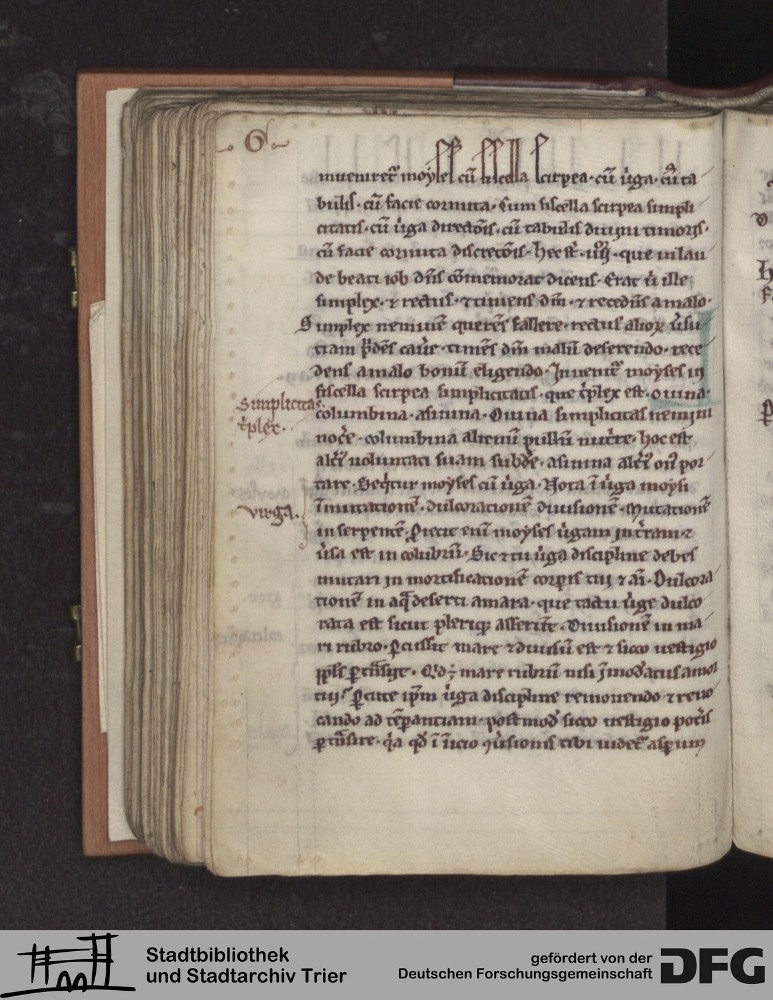 6
inueniret᷑ moyses cū fiscella scirpea · cū ūga · cū ta
bulis · cū facie cornuta · Cum fiscella scirpea simpli
citatis · cū ūga directōis · cū tabulis diuini timoris ·
cū facie cornuta discretōis · Hec st̄ · iiij · que in lau
de beati iob dn̄s cōmemorat dicens · Erat ū ille
simplex · ⁊ rectus · ⁊ timens dm̄ · ⁊ recedēs a malo ·
Simplex neminē querēs fallere · rectus alioꝝ
tiam timēs dm̄ malū deserendo · rece
dens a malo bonū eligendo · Inuenit᷑ moyses in
fiscella scirpea simplicitatis · que t̄plex est · ouina ·
columbina · asinina · Ouina simplicitas nemini
nocēre · columbina alienū pullū nut̄re · hoc est
alt̄i uoluntati suam subdēre · asinina alt̄i on̄ por
tare · Seq̄tur moyses cū ūga · Nota ī ūga moysi
īmutationē · dulcorationē diuisionē · Mutationē
in serpentē · ꝓiecit eni moyses ūgam in t̄ram · ⁊
ūsa est in colubrū · Sic ⁊ tu ūga discipline debes
mutari in mortificationē corꝑis tui ⁊ aī · Dulcora
tionē in aq̄ deserti amara · que tactu ūge dulco
rata est sicut pleriq; asserūt · Diuisionē in ma
ri rubro · ꝑcussit mare ⁊ diuisū est ⁊ sicco uestigio
ppl̄s ꝑtn̄siit · Qd ÷ mare rubrū nisi īmodatus amor
tui · ꝑcute ip̄m ūga discipline remouendo ⁊ reuo
cando ad tēꝑantiam · postmod̄ sicco uestigio pot̄is
ꝑtn̄sire · q̄a qd̄ ī īicio ꝯūsionis tibi uidet᷑ asꝑum
Simplicitas
t̄plex ·
virga ·
Stadtbibliothek
und Stadtarchiv Trier
gefördert von der
Deutschen Forschungsgemeinschaft
DFG